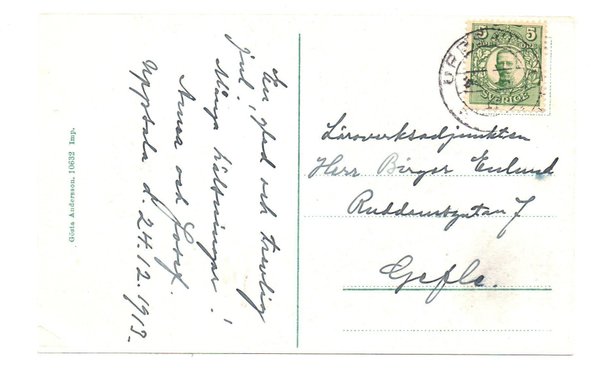 En glad och trevlig
jul!
Många hälsningar!
Anna och Josef.
Uppsala d. 24.12.1913.
Gösta Andersson, 10632 Imp.
5 5
SVERIGE
UPPSALA
Läroverksadjunkten
Herr Birger Enlund
Ruddamsgatan 7
Gefle.